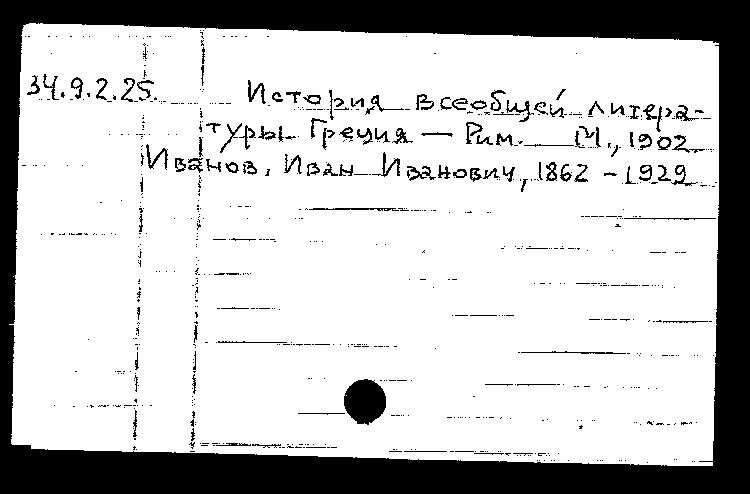 34.9.2.25. История всеобщей литера-
туры. Греция — Рим. М., 1902
Иванов, Иван Иванович, 1862 - 1929